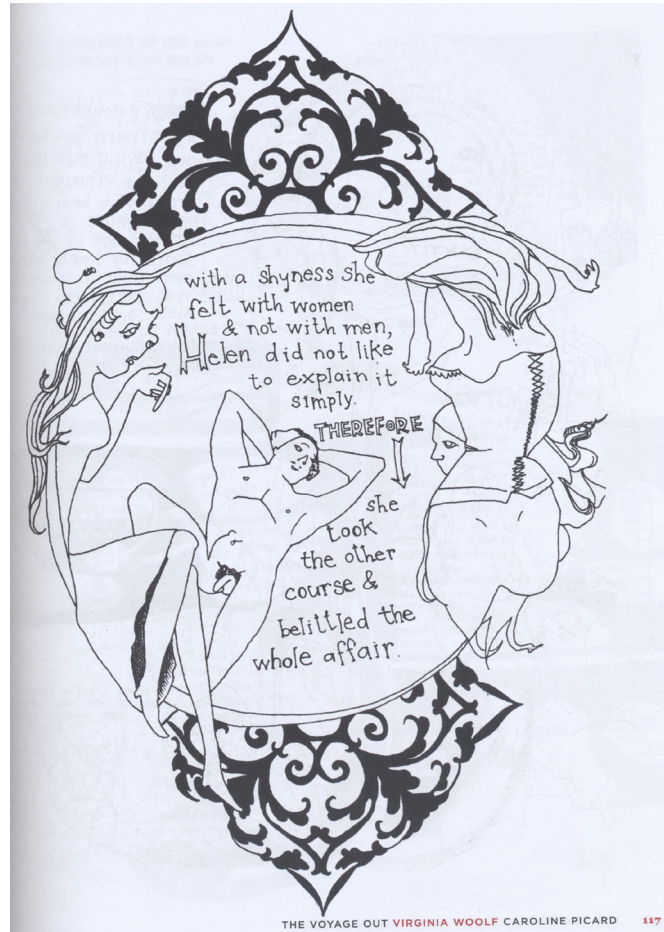 with a shyness she
felt with women
& not with men,
Helen did not like
to explain it
simply.
THEREFORE
she
took
the other
course &
belittled the
whole affair.
THE VOYAGE OUT VIRGINIA WOOLF CAROLINE PICARD 117